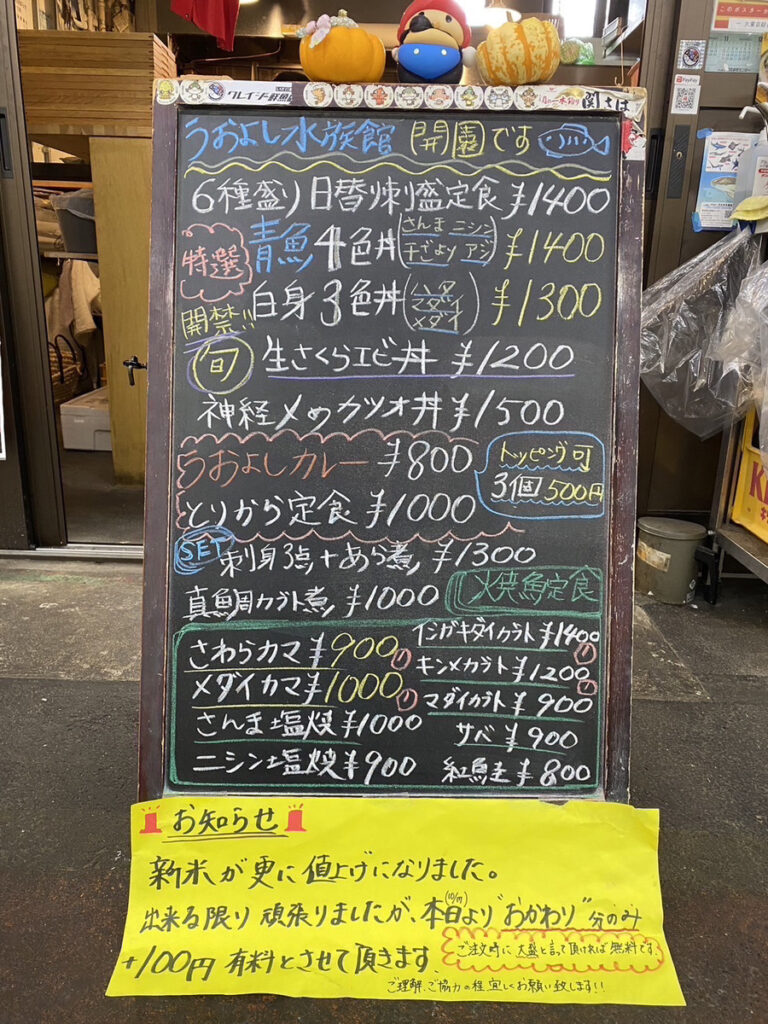 クレイジー鮮魚
関さば
PayPay
うおよし水族館 開園です
6種盛り日替り刺盛定食 ¥1400
特選 青魚4色丼 (さんま ニシン 子どより アジ) ¥1400
白身3色丼 (ハタ マダイ メダイ) ¥1300
開禁!!
旬 生さくらエビ丼 ¥1200
神経メのカツオ丼 ¥1500
うおよしカレー ¥800
トッピング可
3個500円
とりから定食 ¥1000
SET 刺身3点+あら煮 ¥1300
真鯛カブト煮 ¥1000
火焼魚定食
さわらカマ ¥900
メダイカマ ¥1000
さんま塩焼 ¥1000
ニシン塩焼 ¥900
イシガキダイカブト ¥1400
キンメカブト ¥1200
マダイカブト ¥900
サバ ¥900
紅鮭 ¥800
お知らせ
新米が更に値上げになりました。
出来る限り頑張りましたが、本日より"おかわり"分のみ
+100円 有料とさせて頂きます。
ご注文時に大盛と言って頂ければ無料です。
ご理解、ご協力の程、宜しくお願い致します!!